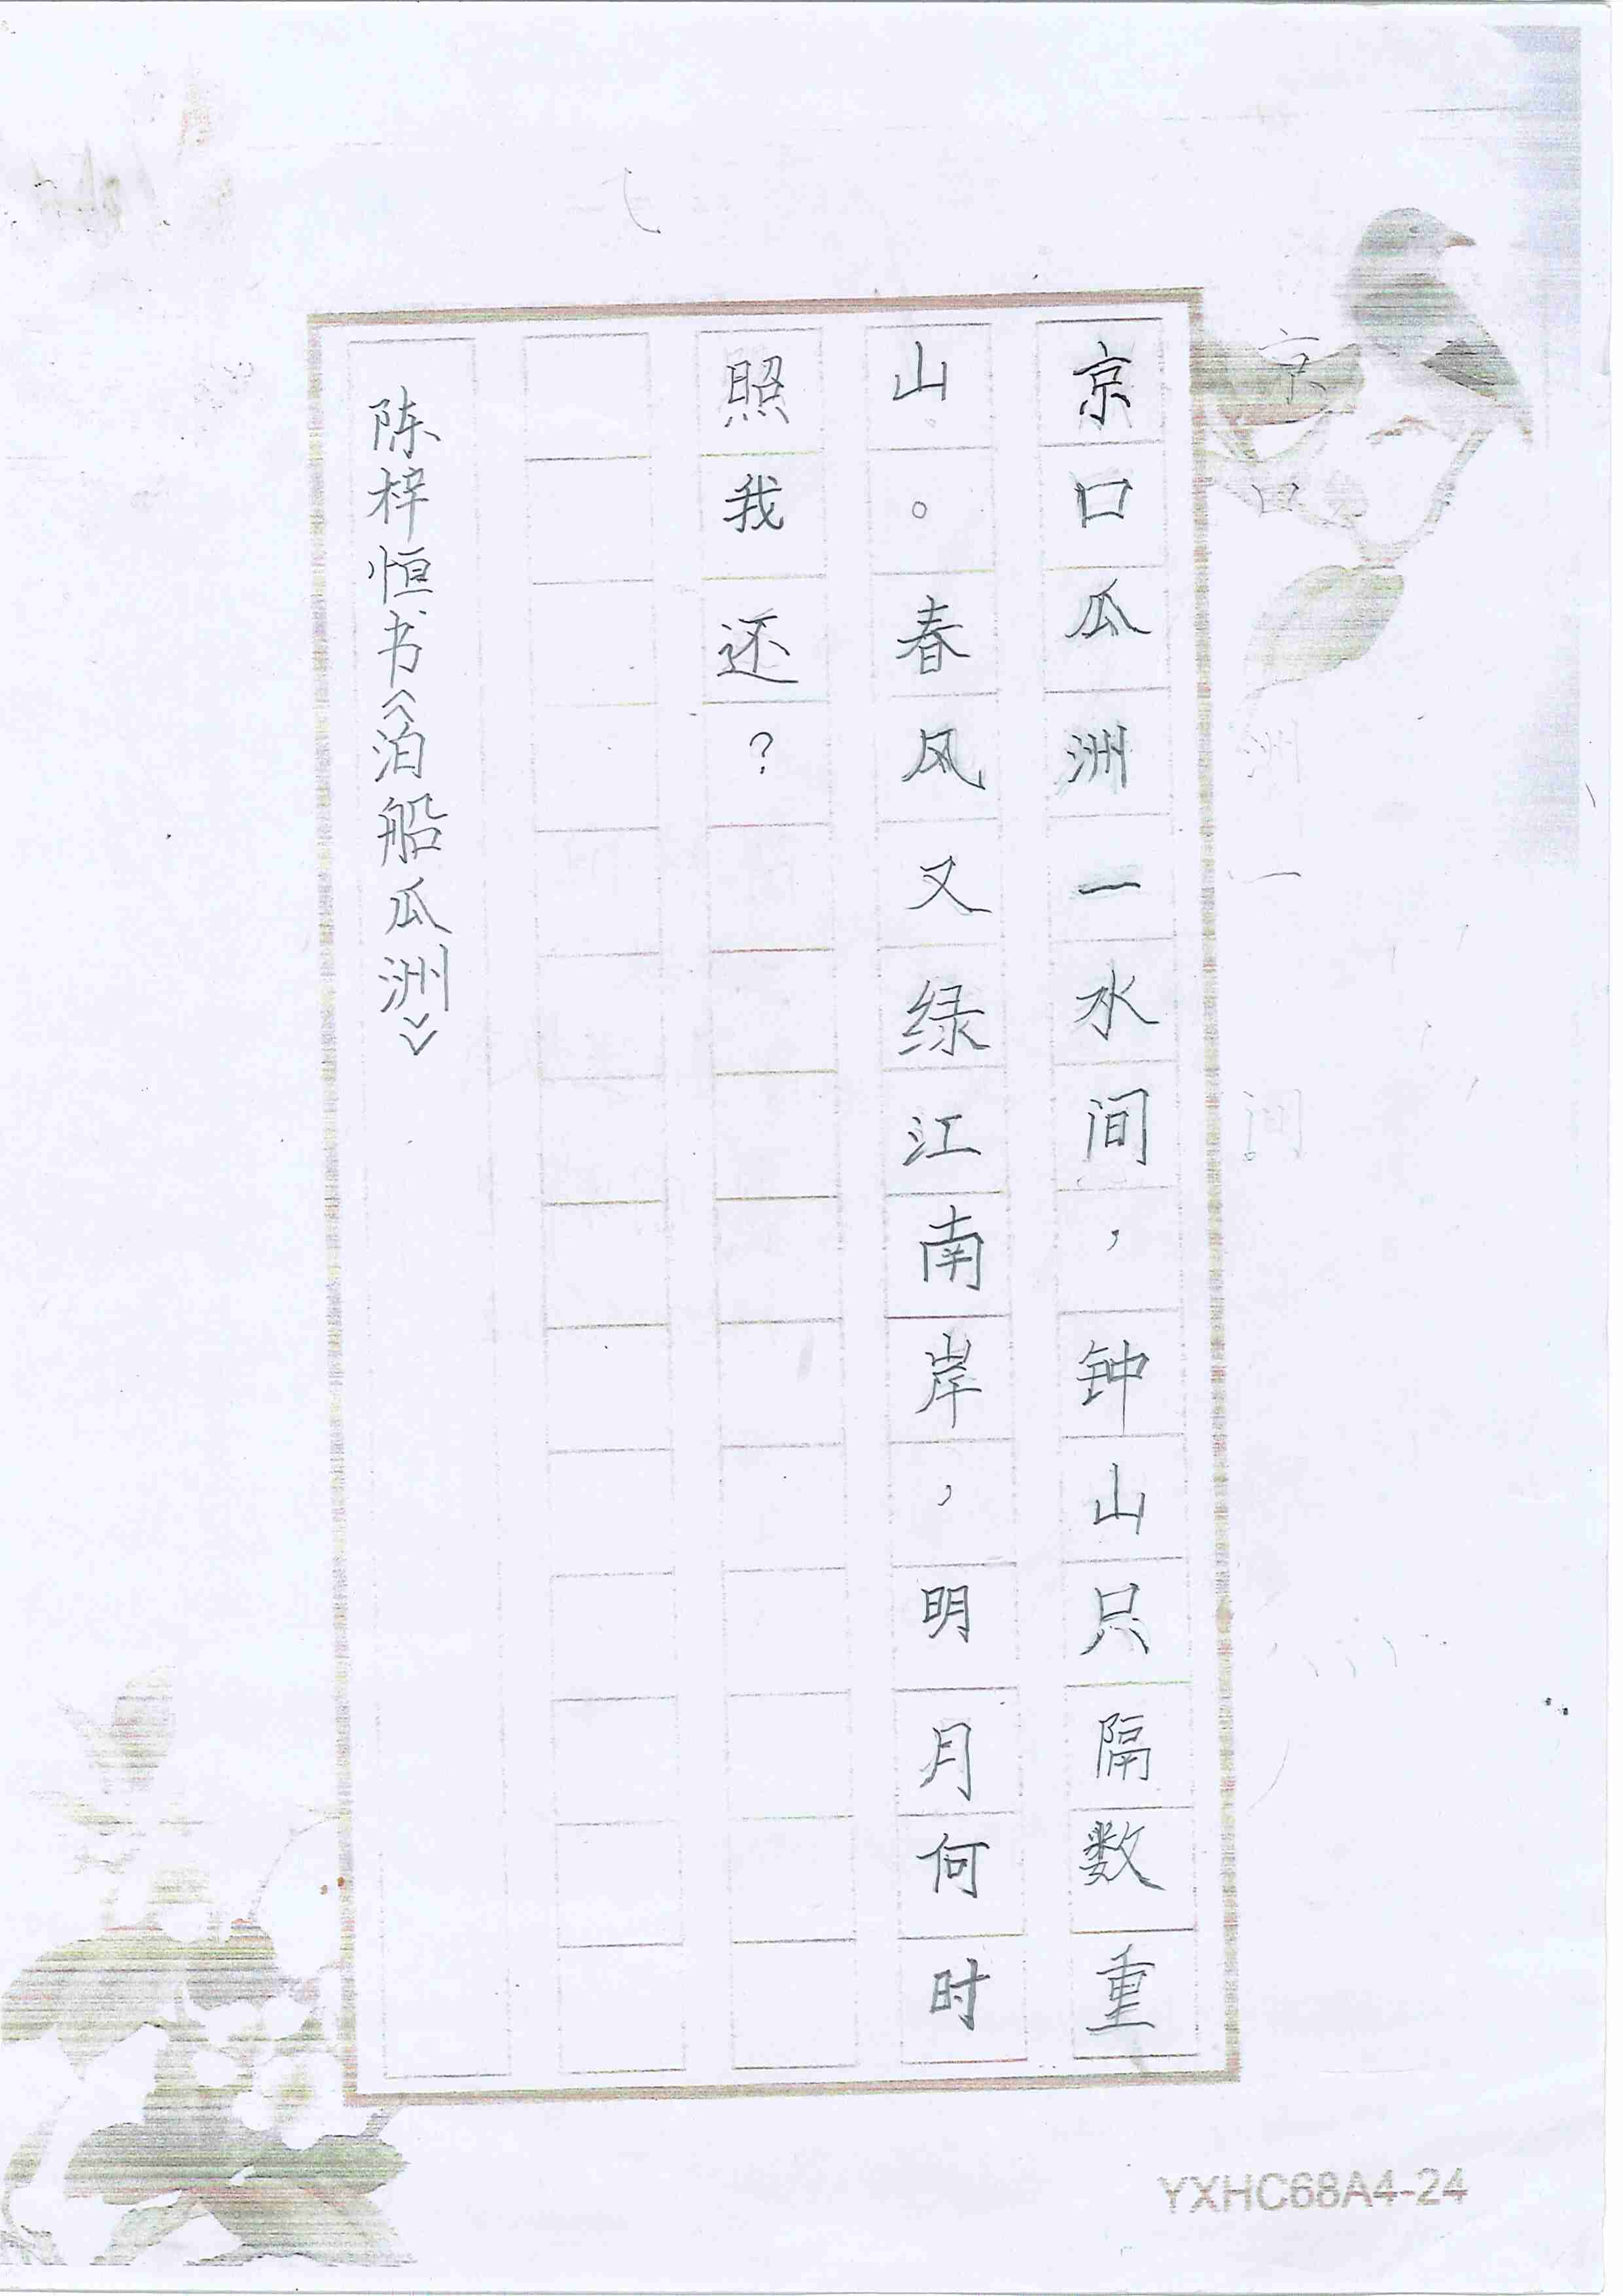 京口瓜洲一水间，钟山只隔数重
山。春风又绿江南岸，明月何时
照我还？
陈梓恒书《泊船瓜洲》
YXHC68A4-24